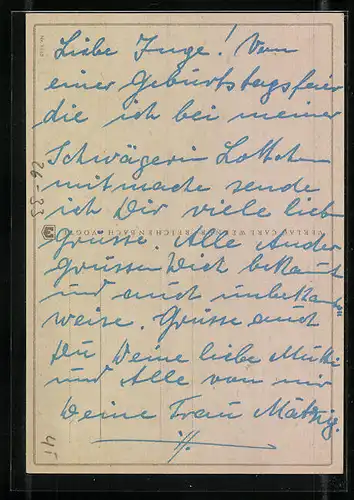 Liebe Inge! Von
einer Geburtstagsfeier
die ich bei meiner
Schwägerin Lottchen
mitmache sende
ich Dir viele lieb
Grüsse. Alle Ander
grüssen Dich bekannt
und auch unbekannter
weise. Grüsse auch
Du Deine liebe Mutti
und Alle von mir
Deine Frau
VERLAG CARL WERNER, REICHENBACH i. VOGTL.
26-33
45